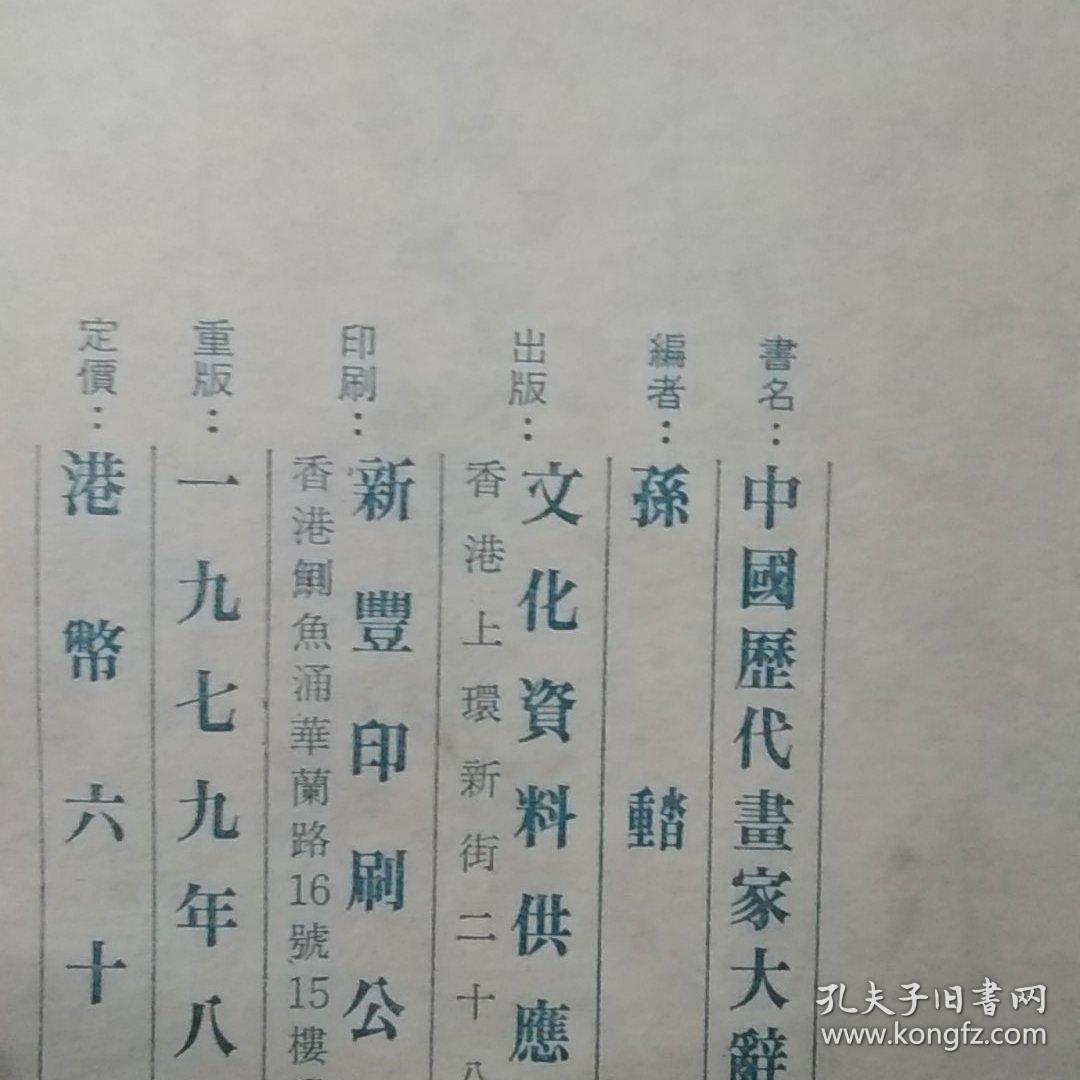 書名：中國歷代畫家大辭
編者：孫
出版：文化資料供應
香港上環新街二十八
印刷：新豐印刷公
香港鰂魚涌華蘭路16號15樓
重版：一九七九年八
定價：港幣六十
孔夫子旧书网
www.kongfz.com